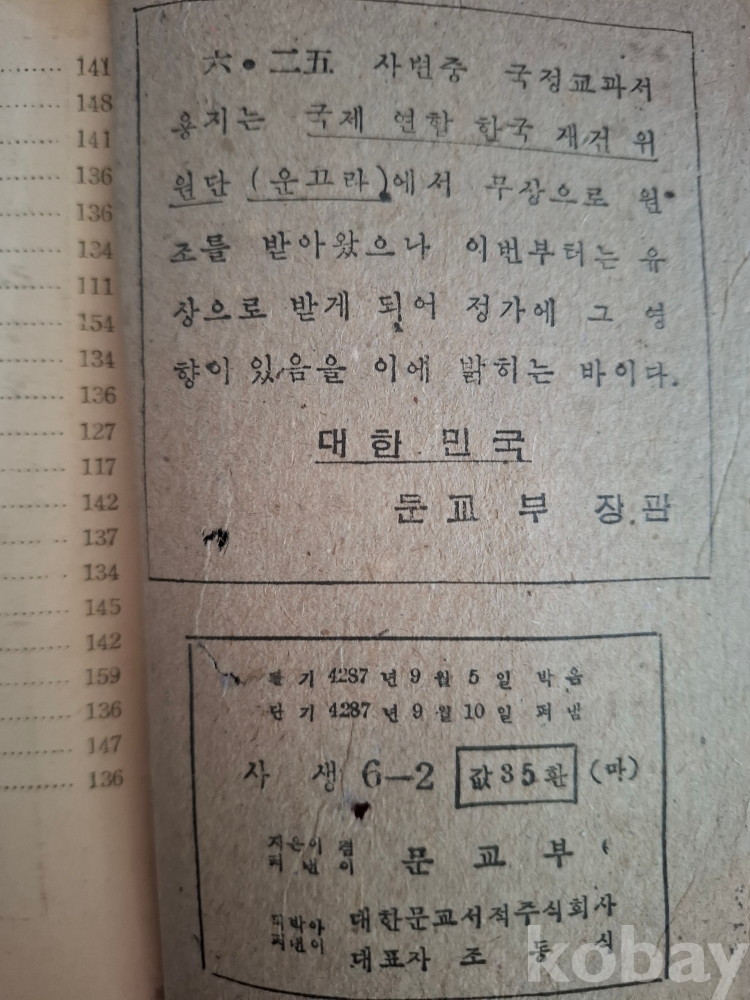 141
148
141
136
136
134
111
154
134
136
127
117
142
137
134
145
142
159
136
147
136
六•二五 사변중 국정교과서
용지는 국제 연합 한국 재건 위
원단 (운끄라)에서 무상으로 원
조를 받아왔으나 이번부터는 유
상으로 받게 되어 정가에 그 영
향이 있음을 이에 밝히는 바이다.
대한 민국
문교부 장관
단기 4287년 9월 5일 박음
단기 4287년 9월 10일 펴냄
사생 6—2 값35환 (마)
지은이 겸
펴낸이 문교부
박아
펴낸이 대한문교서적주식회사
대표자 조동식
kobay